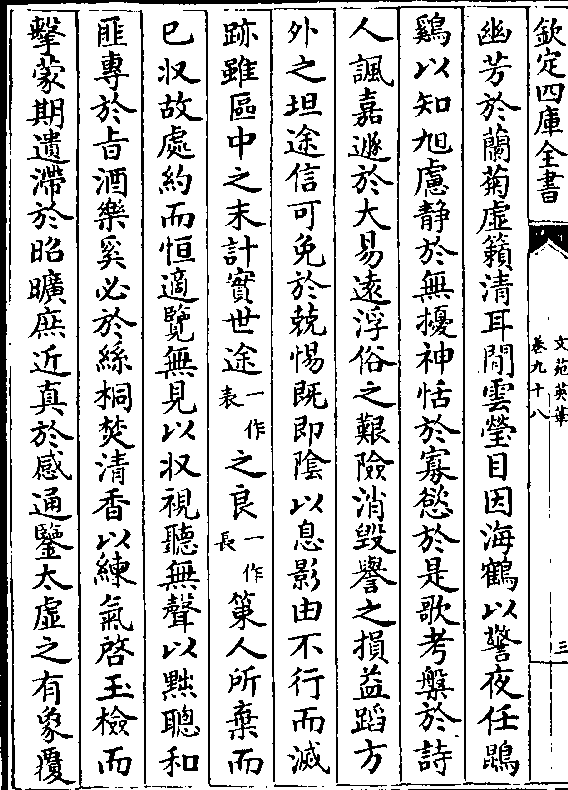 欽定四庫全書
文苑英華
卷九十八
三
幽芳於蘭菊虛籟清耳閒雲瑩目因海鶴以警夜任鵾
鷄以知旭慮静於無擾神恬於寡慾於是歌考槃於詩
人諷嘉遯於大易遠浮俗之艱險消毀譽之損益蹈方
外之坦途信可免於兢惕既即陰以息影由不行而滅
跡雖區中之末計實世途一作表之良一作長策人所棄而
已收故處約而恒適覽無見以収視聽無聲以黜聰和
匪專於㫖酒樂奚必於絲桐焚清香以練氣啓玉檢而
擊蒙期遺滯於昭曠庶近真於感通鑒太虛之有象覆